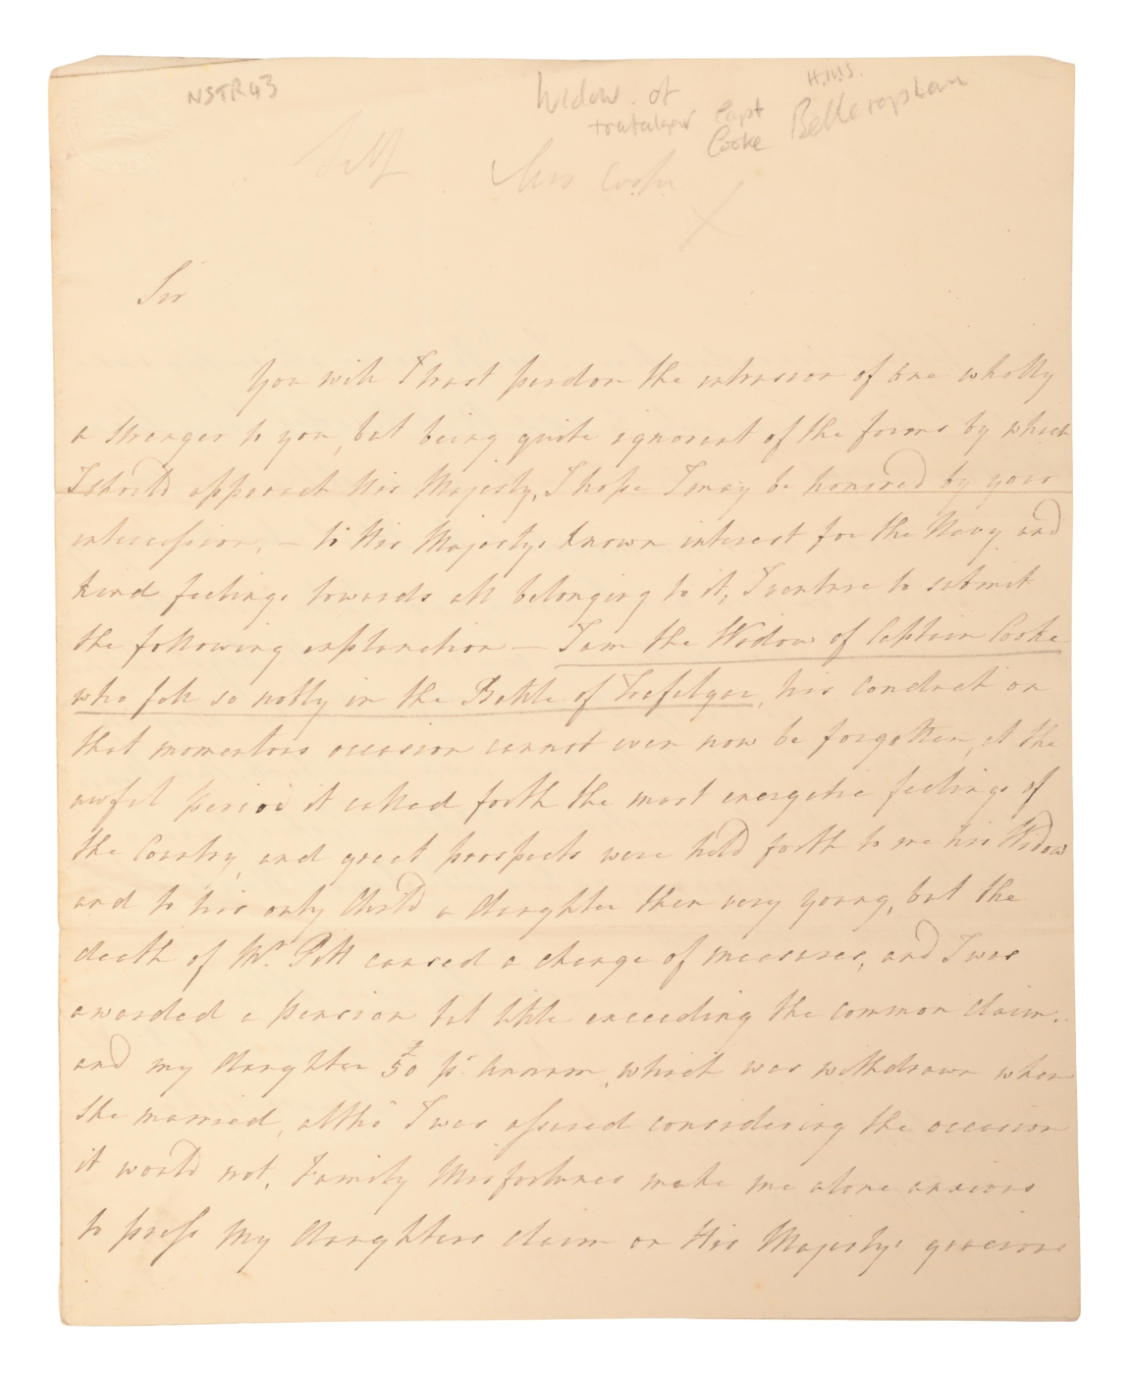 NSTR43
Widow of
trafalgar Capt
Cooke
H.M.S.
Bellerophan
Mrs Cooke
X
Sir
You will I trust pardon the intrusion of one wholly
a stranger to you, but being quite ignorant of the forms by which
I should approach His Majesty, I hope I may be honored by your
intercession, — to His Majestys known interest for the Navy and
kind feelings towards all belonging to it, I venture to submit
the following explanation — I am the Widow of Captain Cooke
who fell so nobly in the Battle of Trafalgar, his conduct on
that momentous occasion cannot even now be forgotten, at the
awful period it called forth the most energetic feelings of
the Country, and great prospects were held forth to me his Widow
and to his only Child a daughter then very young, but the
death of Mr. Pitt caused a change of measures, and I was
awarded a pension but little exceeding the common claim.
and my daughter £50 pr. annum, which was withdrawn when
she married, altho' I was assured considering the occasion
it would not. Family Misfortunes make me alone anxious
to press my daughters claim on His Majestys gracious